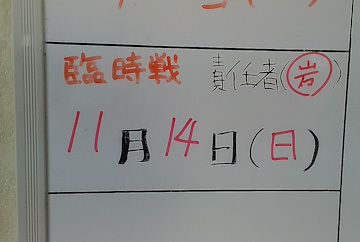 臨時戦 責任者(岩)
11月14日(日)